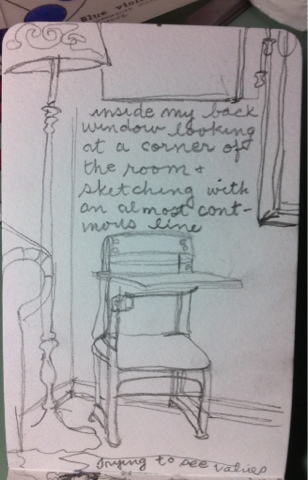 Blue viol
inside my back
window looking
at a corner of
the room +
sketching with
an almost cont-
inuous line
trying to see values